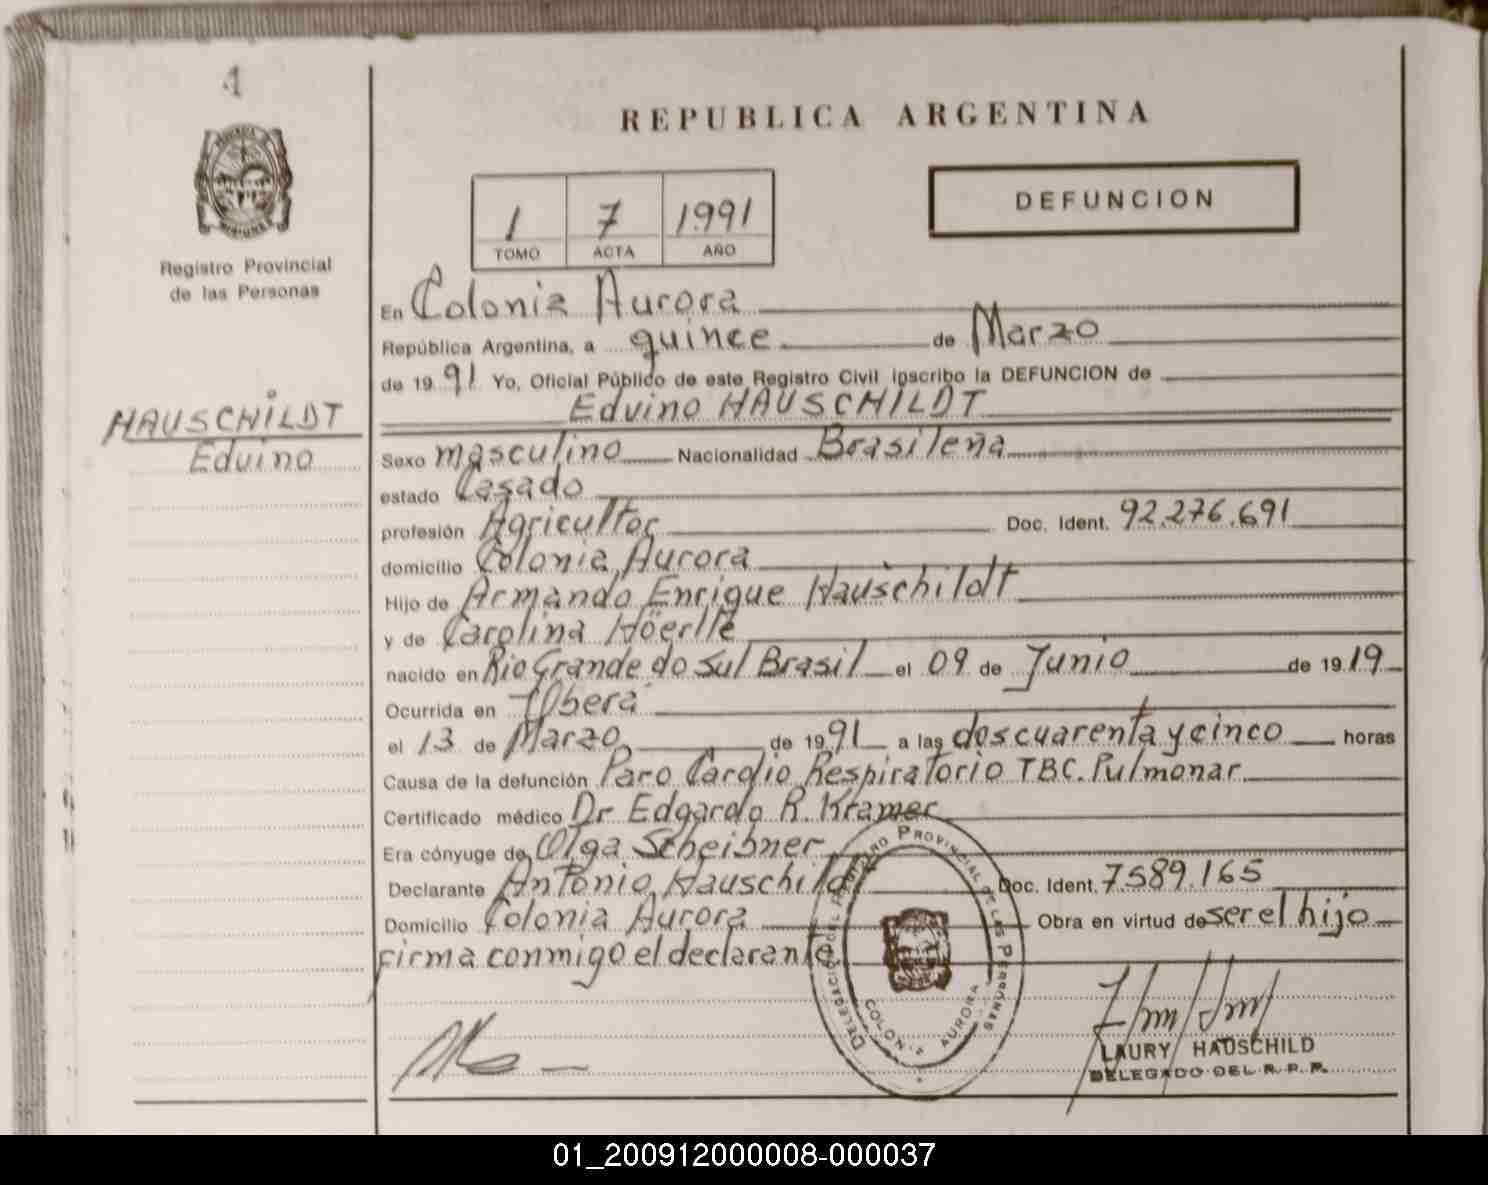 1
REPUBLICA ARGENTINA
DEFUNCION
1 7 1.991
TOMO ACTA AÑO
Registro Provincial
de las Personas
HAUSCHILDT
Edvino
En Colonia Aurora
República Argentina, a quince de Marzo
de 19 91 Yo, Oficial Público de este Registro Civil inscribo la DEFUNCION de
Edvino HAUSCHILDT
Sexo masculino Nacionalidad Brasileña
estado Casado
profesión Agricultor Doc. Ident. 92.276.691
domicilio Colonia Aurora
Hijo de Armando Enrique Hauschildt
y de Carolina Höerlle
nacido en Rio Grande do Sul Brasil el 09 de Junio de 19 19
Ocurrida en Oberá
el 13 de Marzo de 19 91 a las dos cuarenta y cinco horas
Causa de la defunción Paro Cardio Respiratorio TBC. Pulmonar
Certificado médico Dr Edgardo R. Kramer
Era cónyuge de Olga Scheibner
Declarante Antonio Hauschildt Doc. Ident. 7589.165
Domicilio Colonia Aurora Obra en virtud de ser el hijo
firma conmigo el declarante
DELEGACION DEL REGISTRO PROVINCIAL DE LAS PERSONAS
COLONIA AURORA
LAURY HAUSCHILD
DELEGADO DEL R. P. P.
01_200912000008-000037